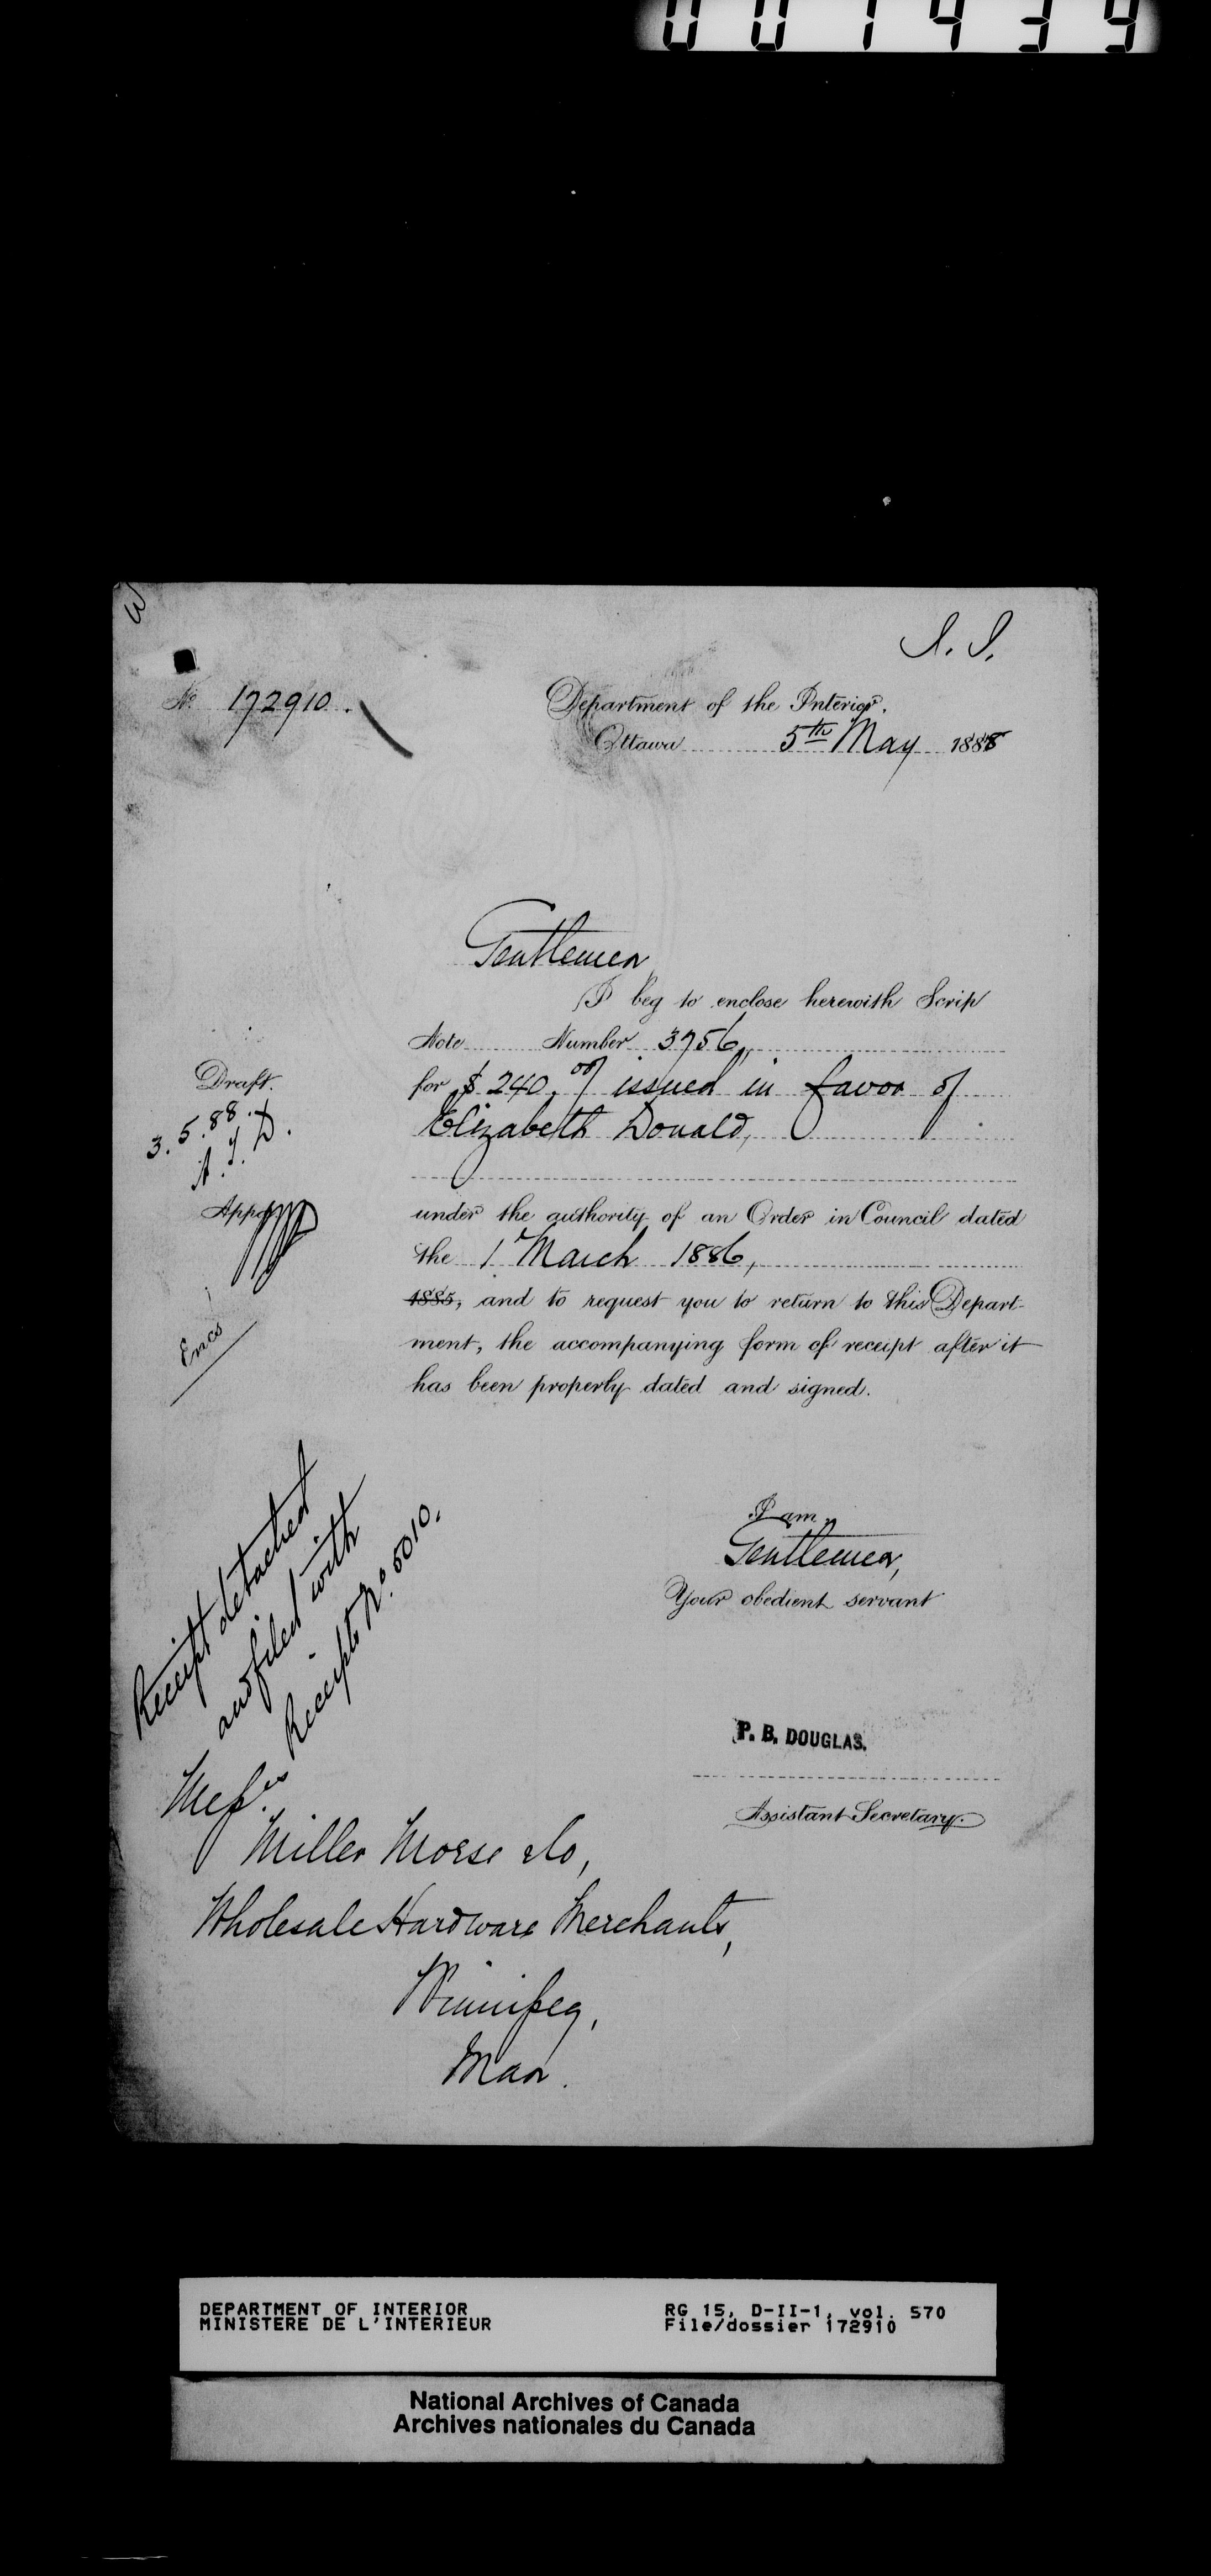 001439
S. S.
No 172910.
Department of the Interior,
Ottawa 5th May 1888
Gentlemen
I beg to enclose herewith Scrip
Note Number 3756,
for $240.00/ issued in favor of
Elizabeth Donald,
Draft.
3.5.88.
A.J.D.
Appd
under the authority of an Order in Council dated
the 1 March 1886,
1885, and to request you to return to this Depart-
ment, the accompanying form of receipt after it
has been properly dated and signed.
Encs
Receipt detached
and filed with
Receipts No. 5010.
I am,
Gentlemen,
Your obedient servant
P. B. DOUGLAS.
Assistant Secretary.
Messrs.
Miller Morse & Co,
Wholesale Hardware Merchants,
Winnipeg,
Man.
DEPARTMENT OF INTERIOR
MINISTERE DE L'INTERIEUR
RG 15, D-II-1, vol. 570
File/dossier 172910
National Archives of Canada
Archives nationales du Canada